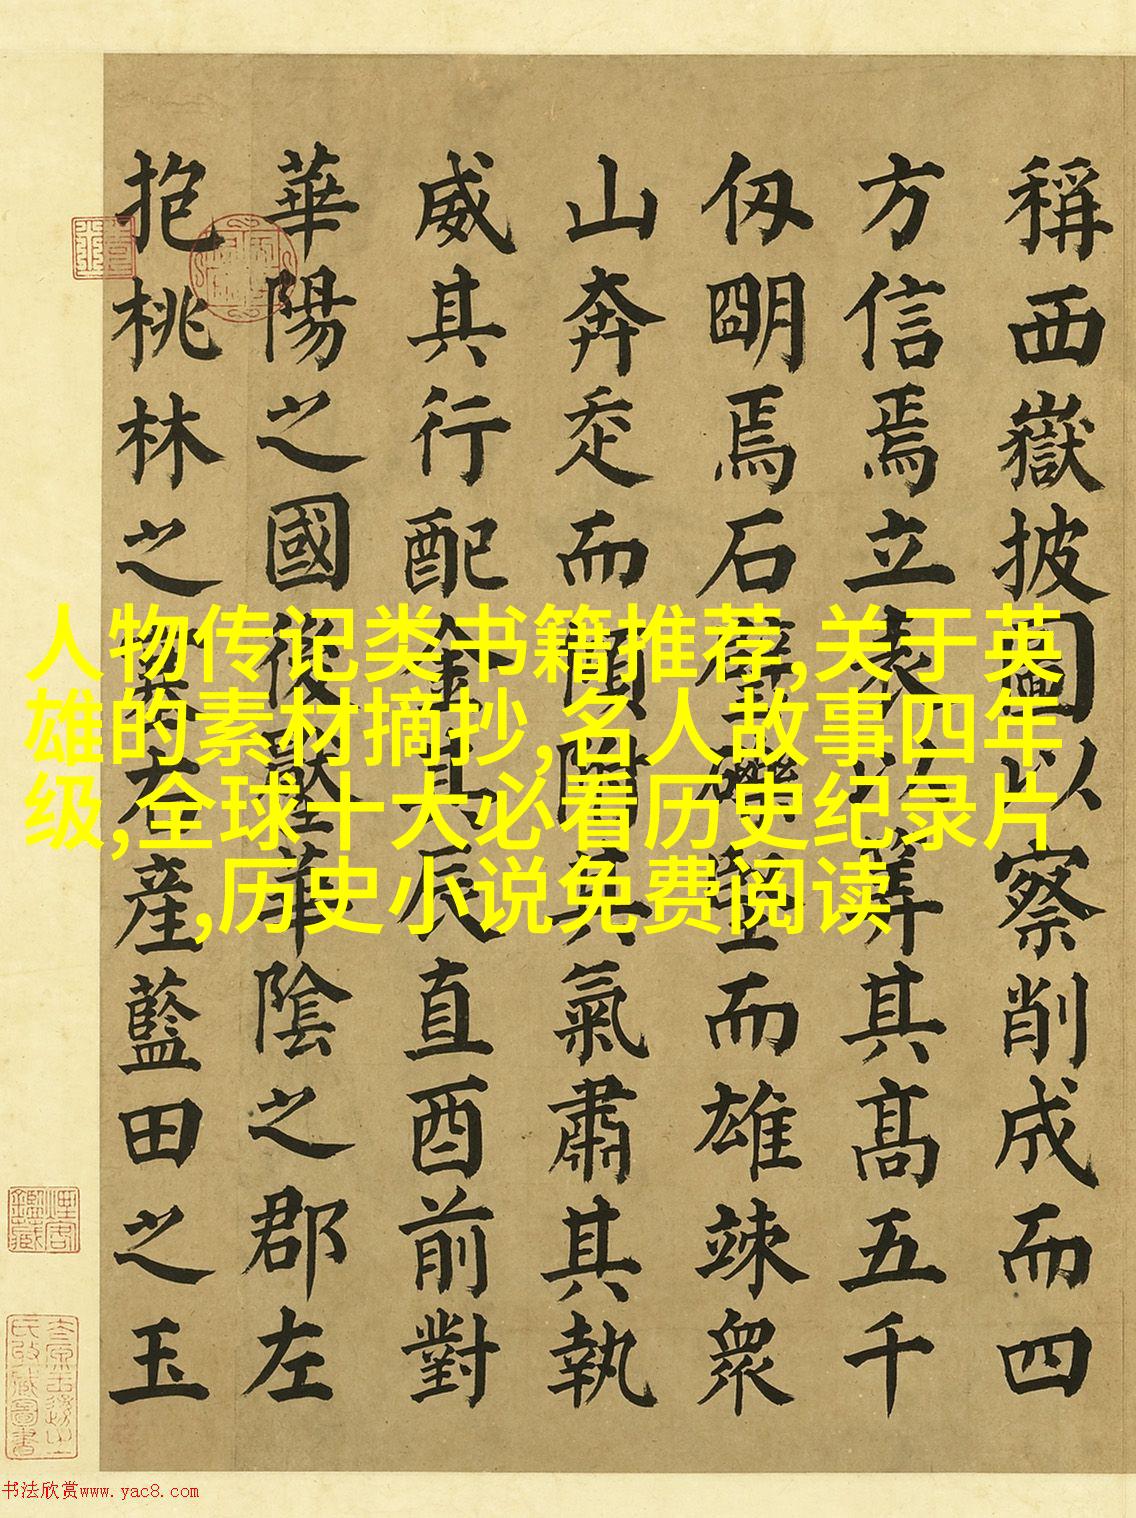 稱西嶽披圖以察削成而四
方信焉立表以筭其髙五千
仭朙焉石壁而雄竦衆
山奔走而傾附其氣肅其執
威其行配金其辰直酉前對
華陽之國後壓華陰之郡左
抱桃林之塞右産藍田之玉
人物传记类书籍推荐,关于英
雄的素材摘抄,名人故事四年
级,全球十大必看历史纪录片
,历史小说免费阅读
书法欣赏www.yac8.com